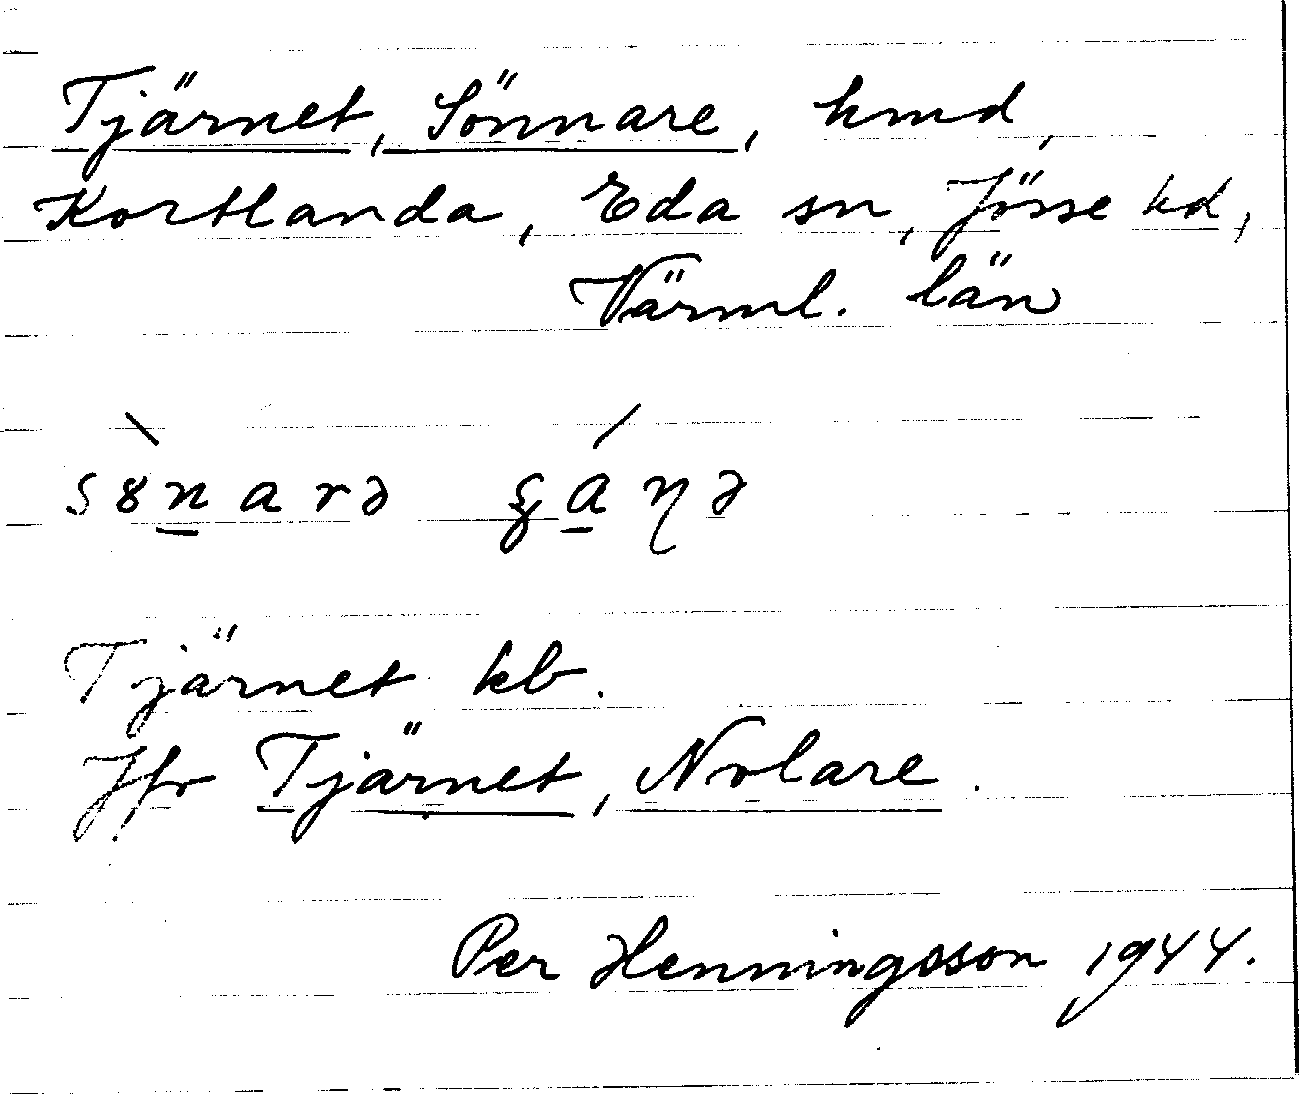 Tjärnet, Sönnare, hmd,
Kortlanda, Eda sn, Jösse hd,
Värml. län
Tjärnet kb.
Jfr Tjärnet, Nolare.
Per Henningsson 1944.